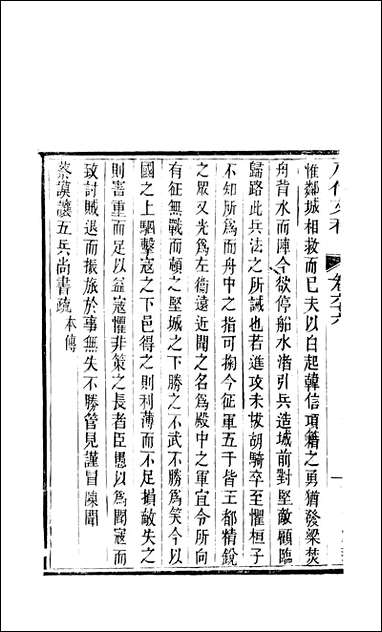 八代文粹 卷六
惟鄰城相救而已夫以白起韓信項籍之勇猶發梁焚
舟背水而陣今欲停船水渚引兵造城前對堅敵顧臨
歸路此兵法之所誡也若進攻未拔胡騎卒至懼桓子
不知所爲而舟中之指可掬今征軍五千皆王都精銳
之眾又光爲左衛遠近聞之名爲殿中之軍宜令所向
有征無戰而頓之堅城之下勝之不武不勝爲笑今以
國之上駟擊寇之下邑得之則利薄而不足損敵失之
則害重而足以益寇懼非策之長者臣愚以爲聞寇而
致討賊退而振旅於事無失不勝管見謹冒陳聞
蔡謨讓五兵尚書疏本傳